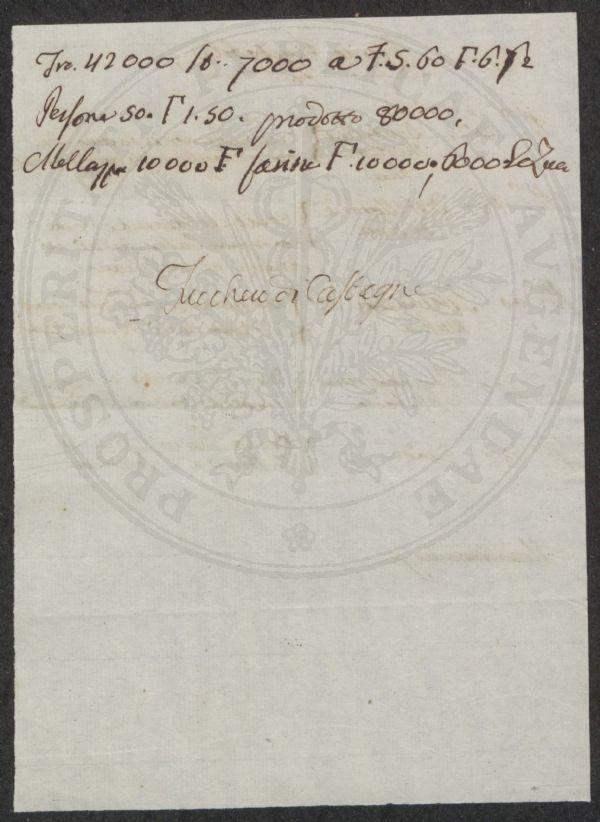 Fr. 42000 lb. 7000 a F. 5. 60 F. 6. 72
Persone 50. F 1. 50. prodotto 80000,
Mellasse 10000 F farine F. 10000, 6000
Zucchero di Castagne
PROSPERITATI PUBLICAE AUGENDAE